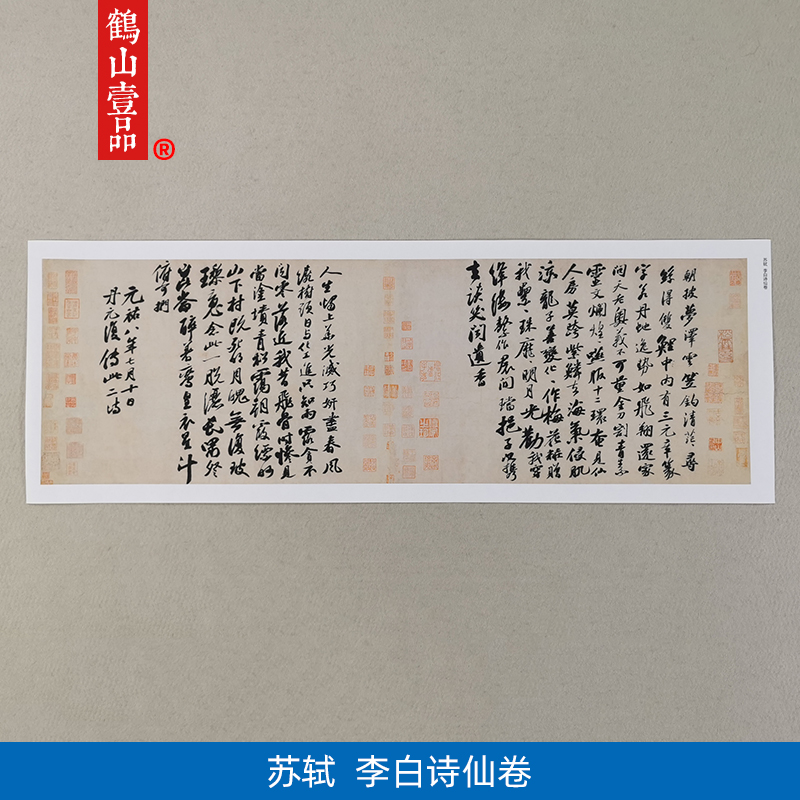 鶴山壹品
®
苏轼 李白诗仙卷
朝披夢澤雲笠釣清茫〻尋
絲得雙鯉中内有三元章篆
字若丹虵逸勢如飛翔還家
問天老奧義不可量金刀割青素
靈文爛煌〻嚥服十二環奄見仙
人房莫跨紫鱗去海氣侵肌
涼龍子善變化〻作梅花粧贈
我纍〻珠靡〻明月光勸我穿
絳縷繫作裙間璫挹子以攜
去談笑聞遺香
人生燭上華光滅巧妍盡春風
繞樹頭日與化工進只知雨露貪不
聞零落近我昔飛骨時慘見
當塗墳青松靄朝霞縹緲
山下村既死明月魄無復玻
璃魂念此一脫灑長嘯登
崑崙醉著鸞皇衣星斗
俯可捫
元祐八年七月十日
丹元復傳此二詩
苏轼 李白诗仙卷